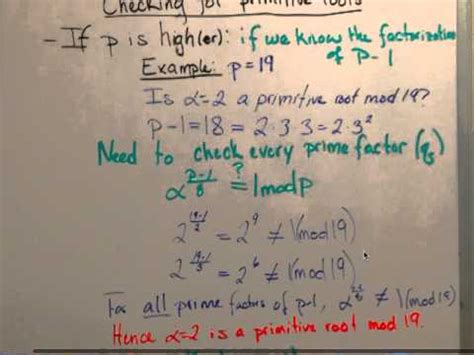 Checking for primitive roots
- If p is high(er): if we know the factorization
of p-1
Example: p=19
Is α=2 a primitive root mod 19?
p-1=18 = 2·3·3 = 2·3²
Need to check every prime factor (q)
α^((p-1)/q) ?= 1 mod p
2^((19-1)/2) = 2^9 ≠ 1 (mod 19)
2^((19-1)/3) = 2^6 ≠ 1 (mod 19)
For all prime factors of p-1, α^((p-1)/q) ≠ 1 (mod 19).
Hence α=2 is a primitive root mod 19.